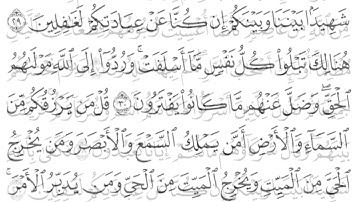 شَهِيدًۢا بَيْنَنَا وَبَيْنَكُمْ إِن كُنَّا عَنْ عِبَادَتِكُمْ لَغَٰفِلِينَ ٢٩
هُنَالِكَ تَبْلُوا۟ كُلُّ نَفْسٍ مَّآ أَسْلَفَتْ ۚ وَرُدُّوٓا۟ إِلَى ٱللَّهِ مَوْلَىٰهُمُ
ٱلْحَقِّ ۖ وَضَلَّ عَنْهُم مَّا كَانُوا۟ يَفْتَرُونَ ٣٠ قُلْ مَن يَرْزُقُكُم مِّنَ
ٱلسَّمَآءِ وَٱلْأَرْضِ أَمَّن يَمْلِكُ ٱلسَّمْعَ وَٱلْأَبْصَٰرَ وَمَن يُخْرِجُ
ٱلْحَىَّ مِنَ ٱلْمَيِّتِ وَيُخْرِجُ ٱلْمَيِّتَ مِنَ ٱلْحَىِّ وَمَن يُدَبِّرُ ٱلْأَمْرَ ۚ